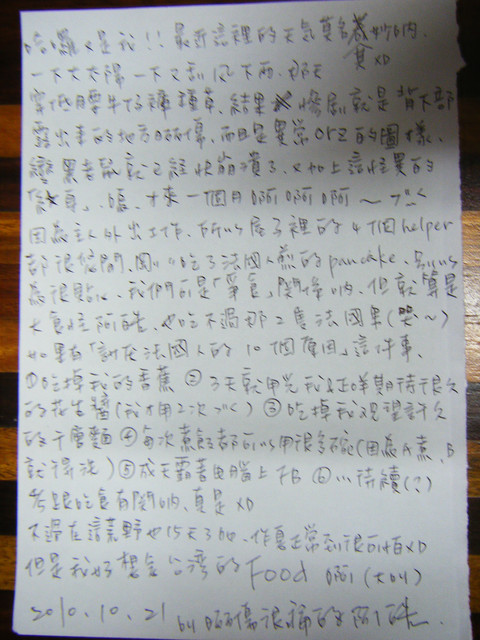 哈囉又是我!!最近這裡的天氣莫名其妙的吶.
一下大太陽一下又刮風下雨.那天
穿低腰牛仔褲種草.結果 慘劇就是背下部
露出來的地方曬傷.而且是異常orz的圖樣.
變黑老鼠就已經快崩潰了.又加上這怪異的
.嗚.才來一個月啊啊啊啊~
因為主人外出工作.所以屋子裡的4個helper
都很悠閒.剛剛吃了法國人煎的pancake.別以
為很點心.我們可是「爭食」關係吶.但就算是
大食怪阿皓.也吃不過那二隻法國隼(哭~)
如果有「討厭法國人的10個原因」這件事.
①吃掉我的香蕉 ②3天就用光我足足期待很久
的花生醬(我才用2次) ③吃掉我視望許久
的千層麵 ④每次煮飯都可以用很多碗(因為A煮.B
就得洗) ⑤成天霸著電腦上FB ⑥...待續(?)
都跟吃食有關吶.真是XD
不過在這荒野也15天了的.作息正常到很可怕XD
但是我好想念台灣的Food啊(大叫)
2010.10.21 by 曬傷很痛的阿皓.